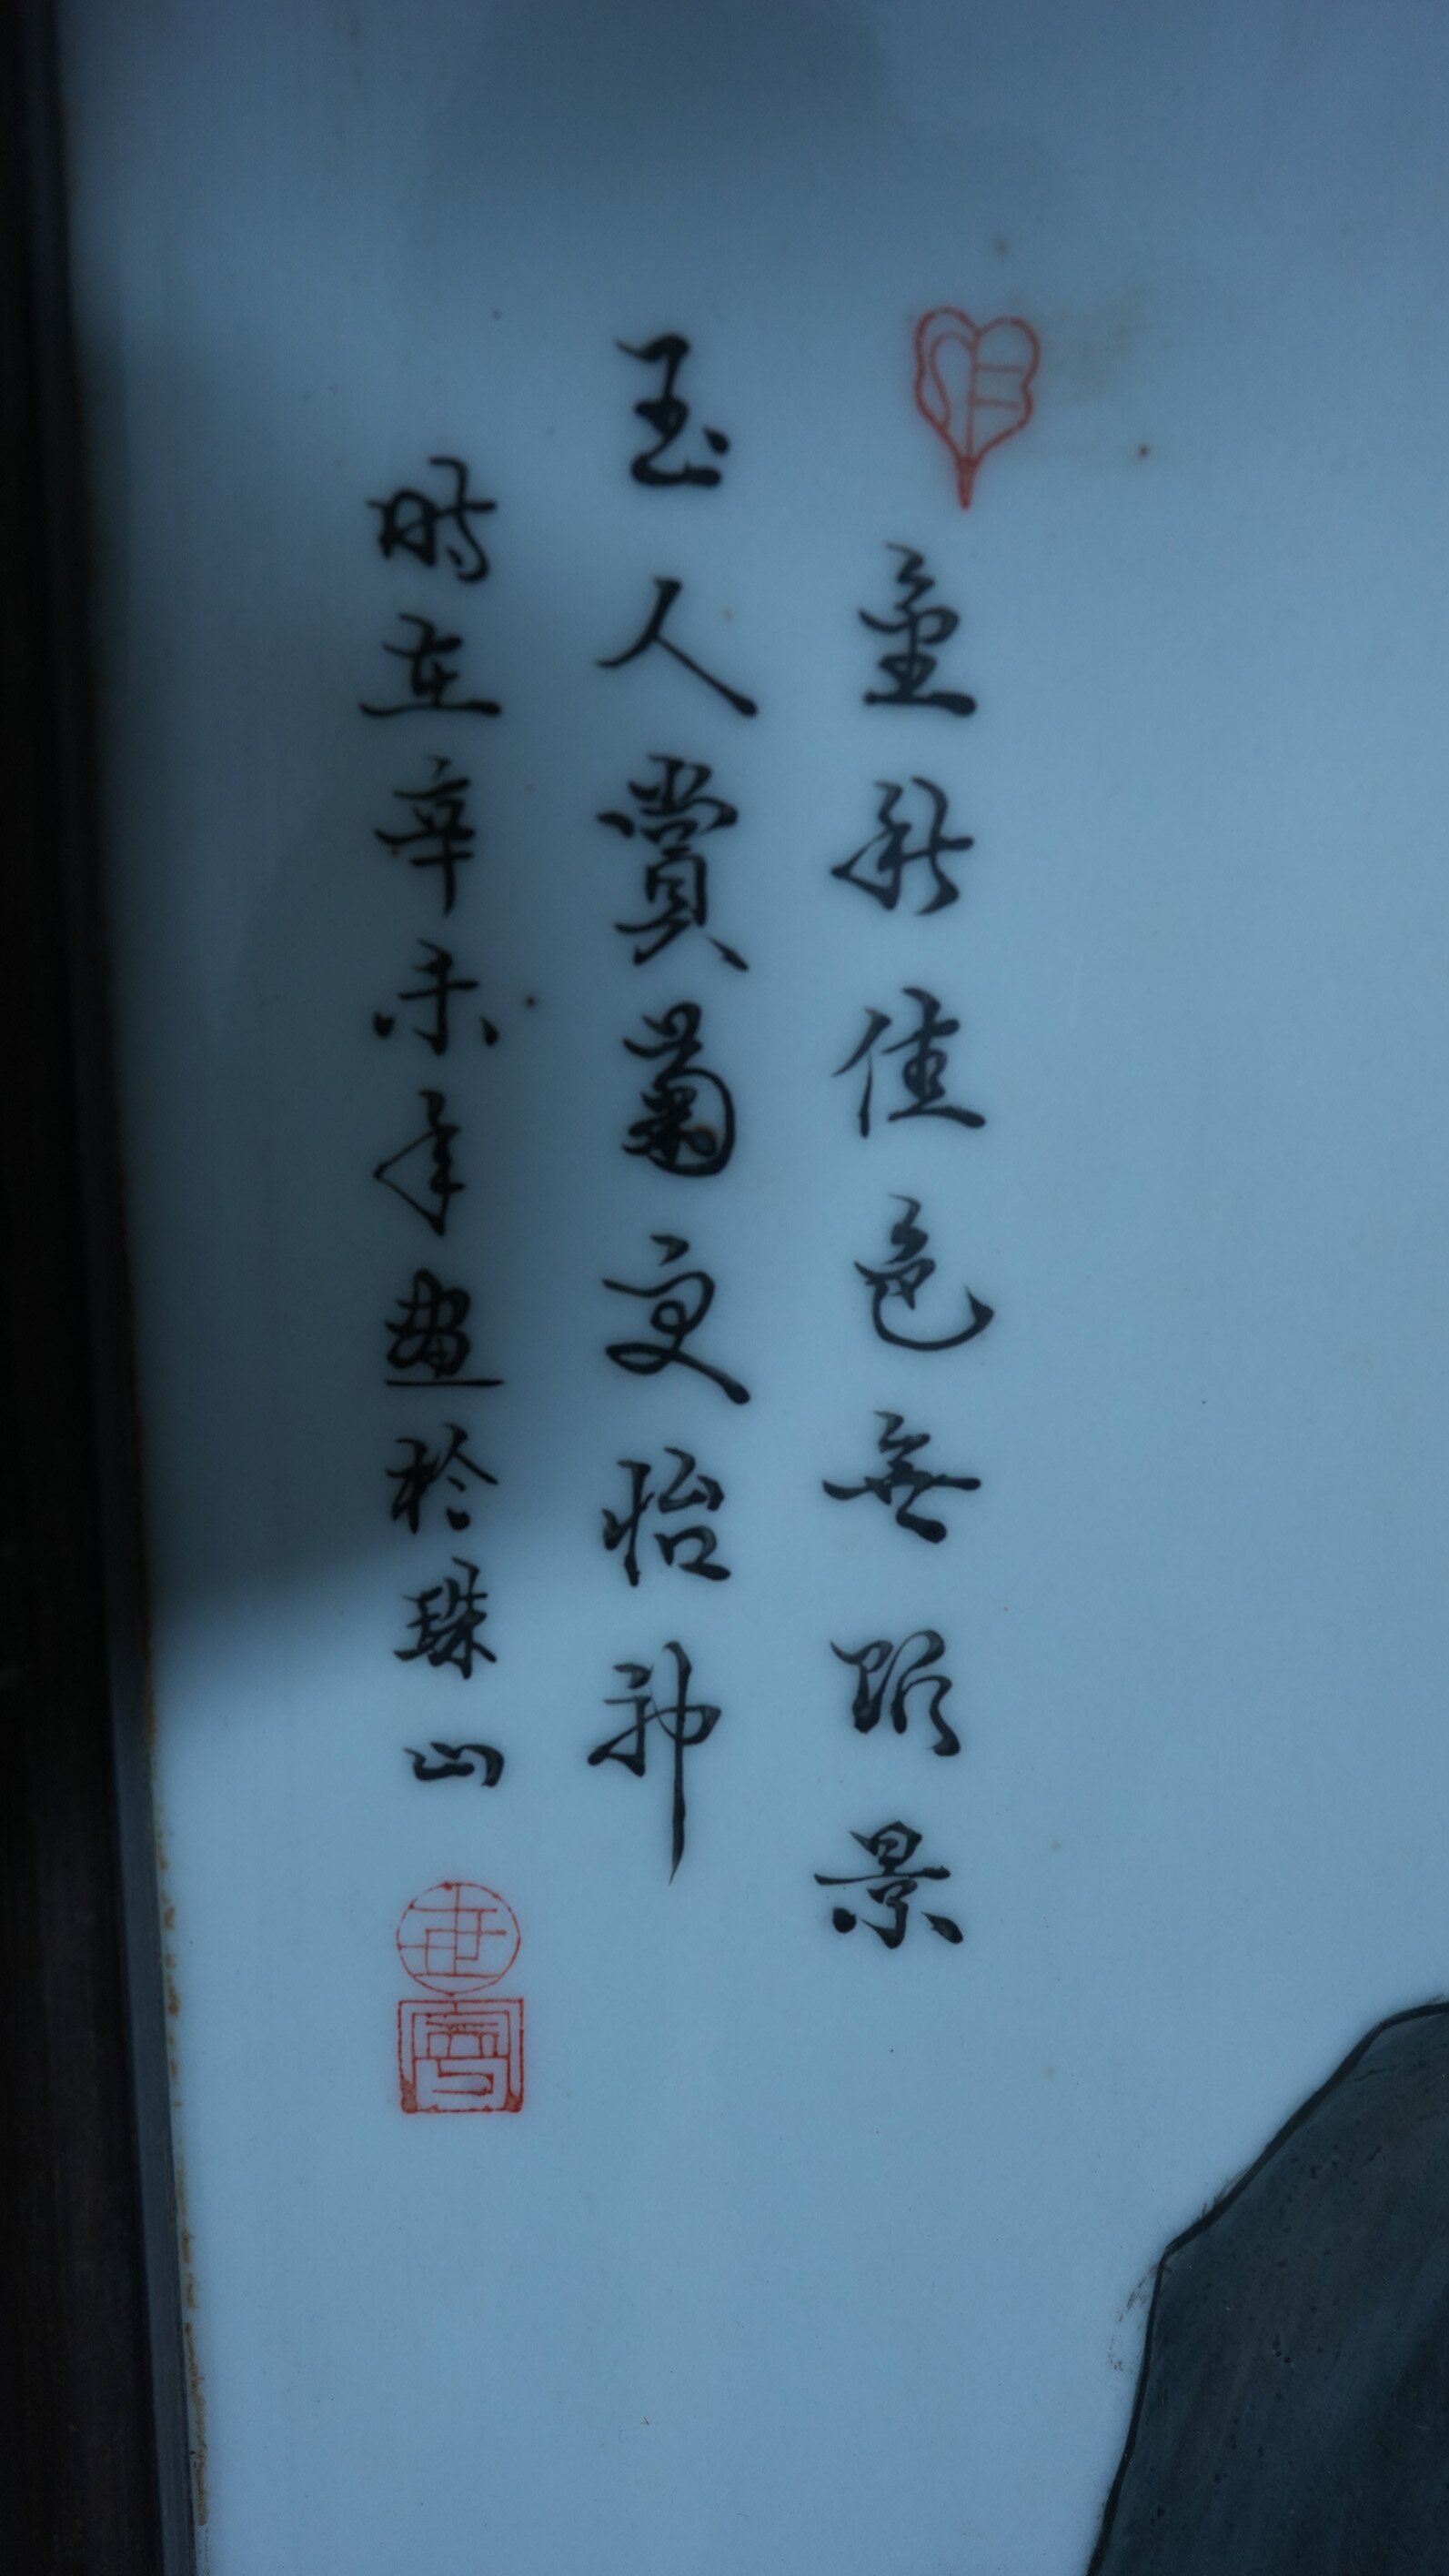 金秋佳色無踰景
玉人賞菊更怡神
時在辛未年畫於珠山